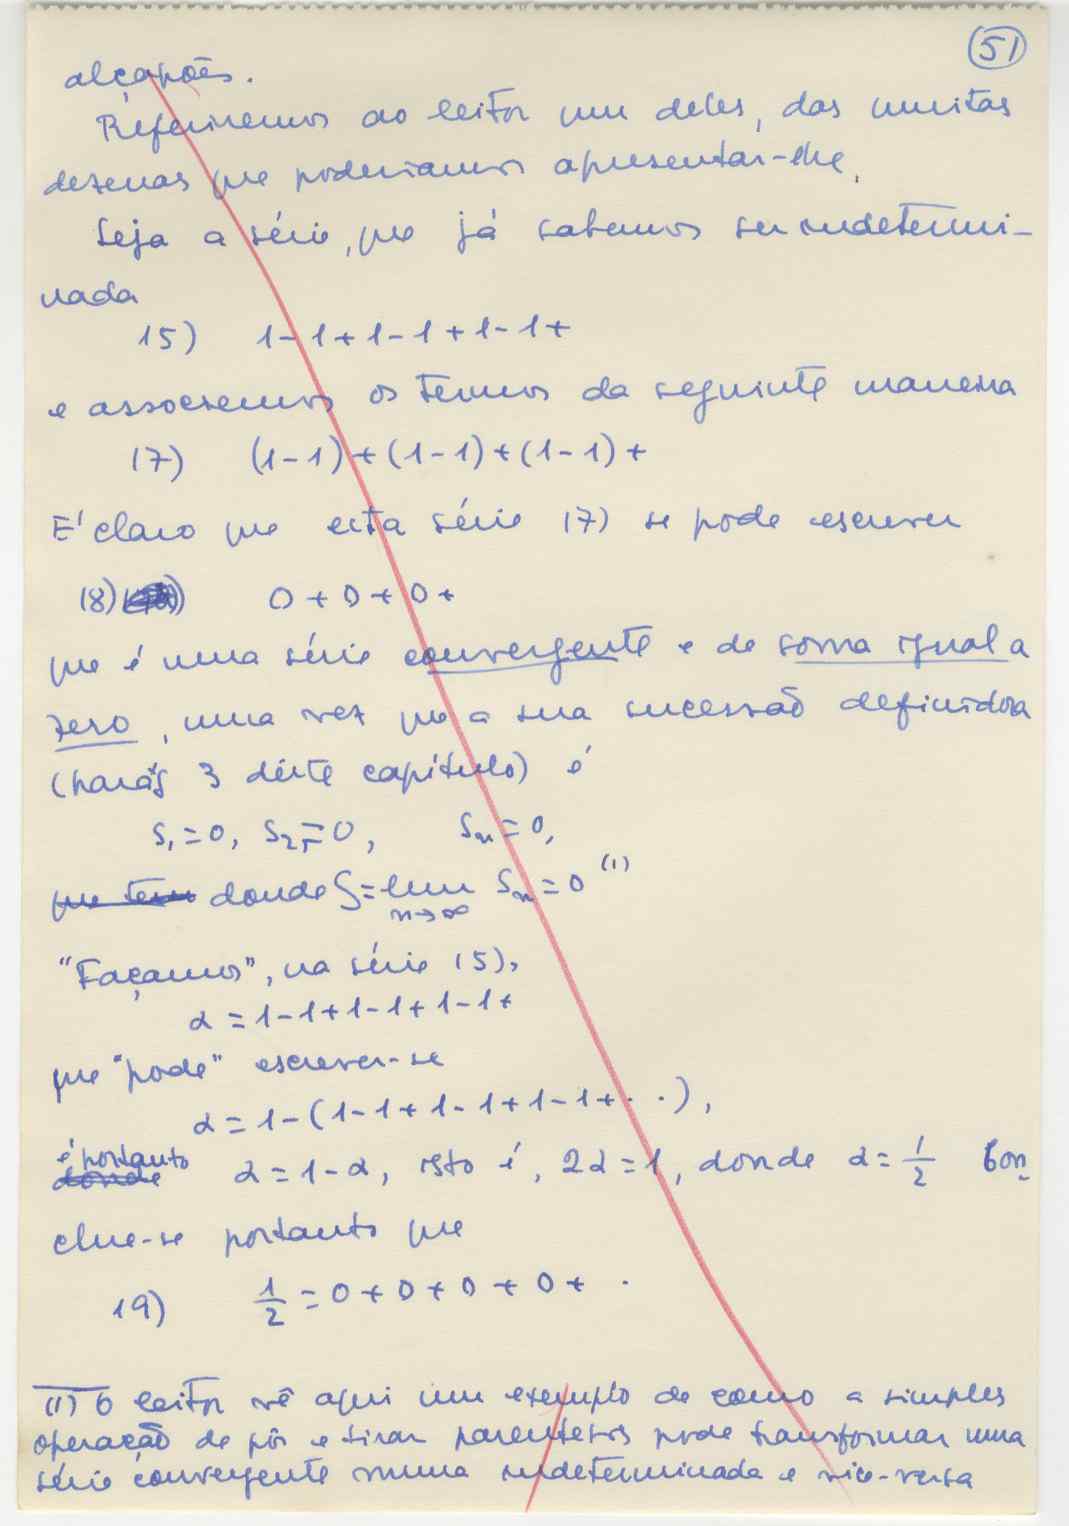 51
alçapões.
Referiremos ao leitor um deles, das muitas
dezenas que poderíamos apresentar-lhe.
Seja a série, que já sabemos ser indetermi-
nada
15) 1-1+1-1+1-1+
e associemos os termos da seguinte maneira
17) (1-1)+(1-1)+(1-1)+
É claro que esta série 17) se pode escrever
18) 0+0+0+
que é uma série convergente e de soma igual a
zero, uma vez que a sua sucessão definidora
(parág 3 dêste capítulo) é
S₁=0, S₂=0, Sₙ=0,
que tem donde S=lim Sₙ=0 (1)
n→∞
"Façamos", na série 15),
α=1-1+1-1+1-1+
que "pode" escrever-se
α=1-(1-1+1-1+1-1+..),
é portanto
donde α=1-α, isto é, 2α=1, donde α=1/2 Con
clue-se portanto que
19) 1/2=0+0+0+0+ .
(1) O leitor vê aqui um exemplo de como a simples
operação de pôr e tirar parentesis pode transformar uma
série convergente numa indeterminada e vice-versa